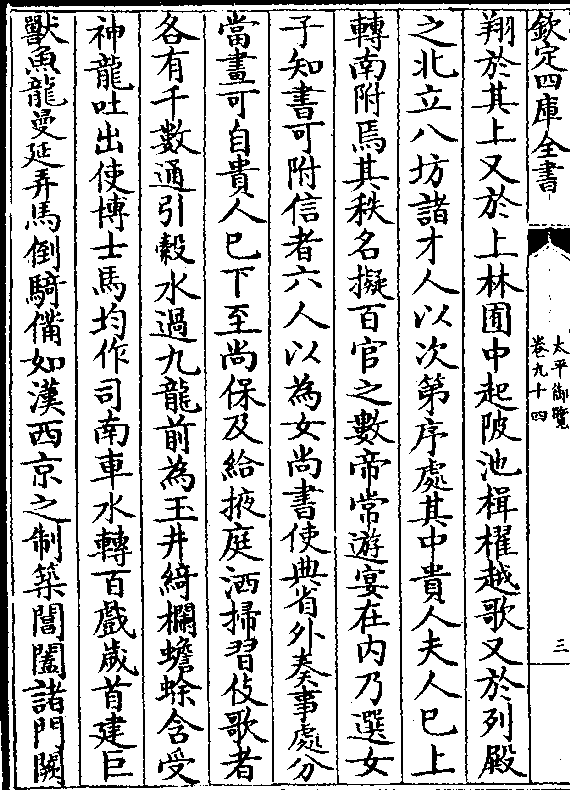 欽定四庫全書
太平御覽
卷九十四
三
翔於其上又於上林圃中起陂池楫櫂越歌又於列殿
之北立八坊諸才人以次第序處其中貴人夫人已上
轉南附焉其秩名擬百官之數帝常遊宴在内乃選女
子知書可附信者六人以為女尚書使典省外奏事處分
當畫可自貴人已下至尚保及給掖庭洒掃習伎歌者
各有千數通引穀水過九龍前為玉井綺欄蟾蜍含受
神龍吐出使博士馬均作司南車水轉百戲歲首建巨
獸魚龍曼延弄馬倒騎備如漢西京之制築閶闔諸門闕